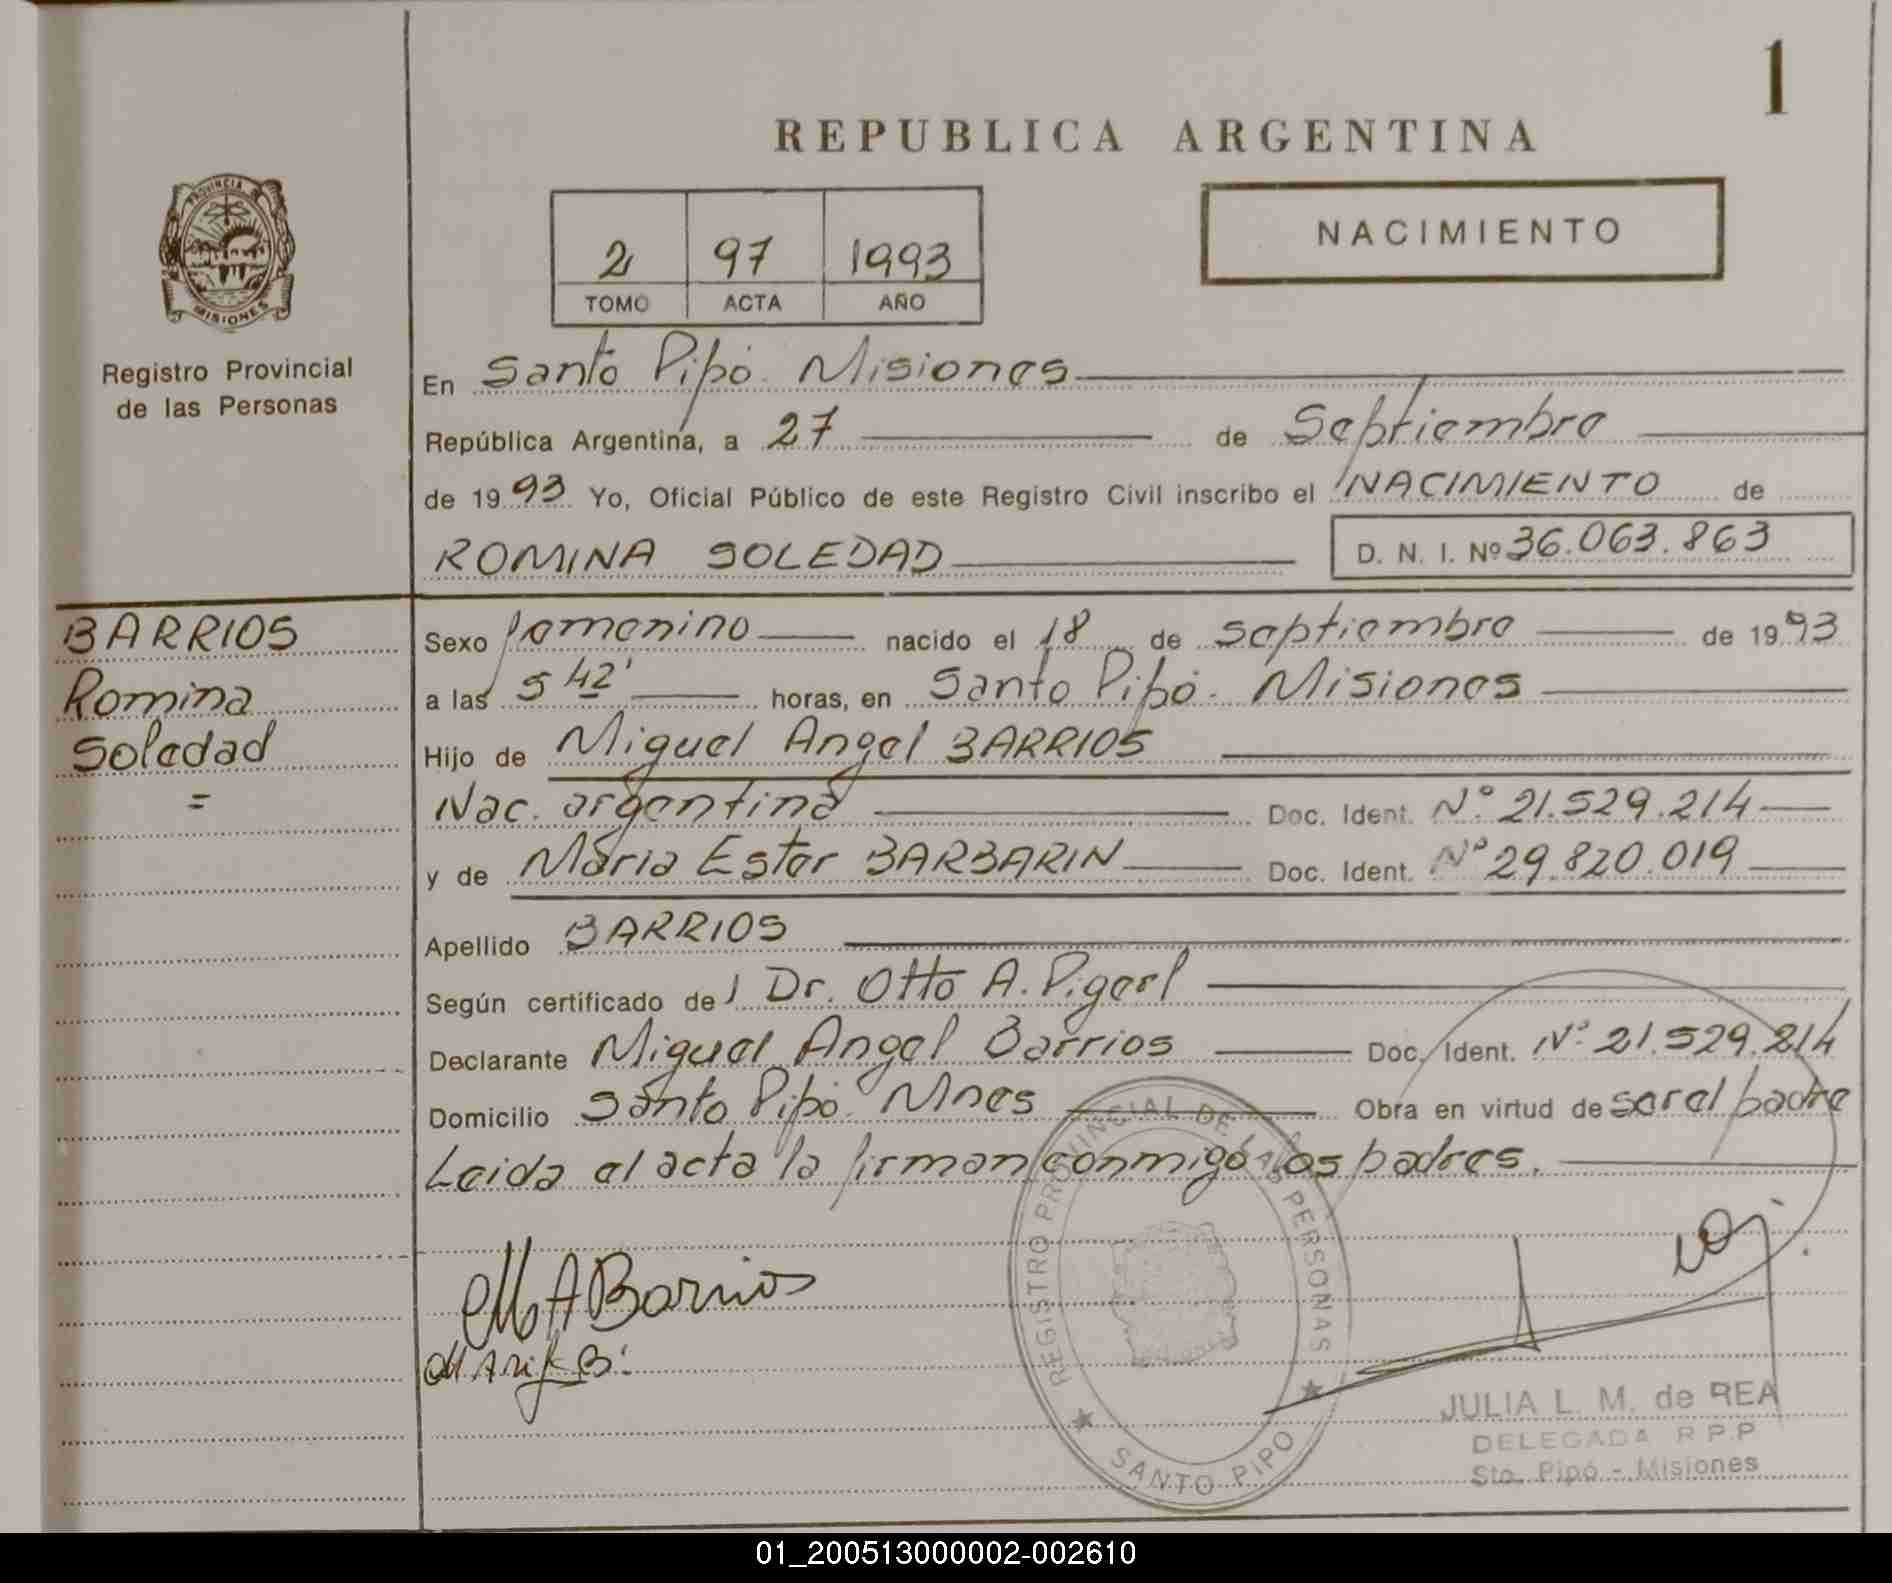 1
REPUBLICA ARGENTINA
PROVINCIA
MISIONES
Registro Provincial
de las Personas
2 97 1993
TOMO ACTA AÑO
NACIMIENTO
En Santo Pipó. Misiones
República Argentina, a 27 de Septiembre
de 1993 Yo, Oficial Público de este Registro Civil inscribo el NACIMIENTO de
ROMINA SOLEDAD D. N. I. Nº 36.063.863
BARRIOS
Romina
Soledad
=
Sexo femenino nacido el 18 de septiembre de 1993
a las 5 42' horas, en Santo Pipó. Misiones
Hijo de Miguel Angel BARRIOS
Nac. argentina Doc. Ident. Nº 21.529.214
y de Maria Ester BARBARIN Doc. Ident. Nº 29.820.019
Apellido BARRIOS
Según certificado del Dr. Otto A. Pigerl
Declarante Miguel Angel Barrios Doc. Ident. Nº 21.529.214
Domicilio Santo Pipó. Mnes Obra en virtud de ser el padre
Leida el acta la firman conmigo los padres.
MABarrios
REGISTRO PROVINCIAL DE LAS PERSONAS
SANTO PIPO
JULIA L. M. de REA
DELEGADA R.P.P
Sto. Pipó - Misiones
01_200513000002-002610